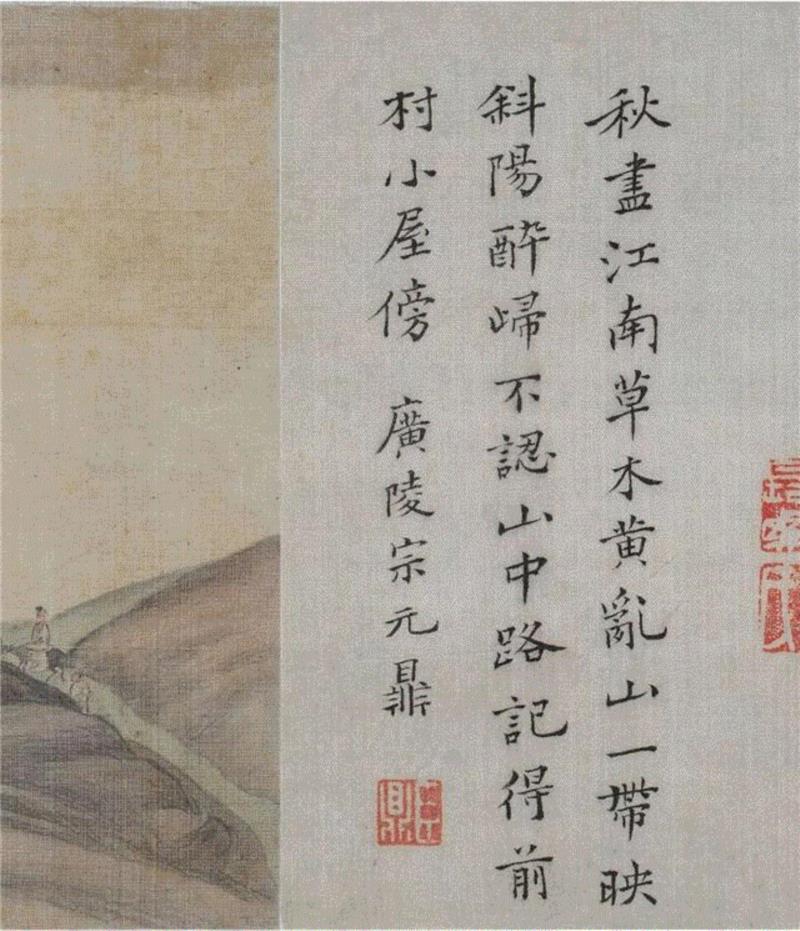 秋盡江南草木黄亂山一帶映
斜陽醉歸不認山中路記得前
村小屋傍　廣陵宗元鼎